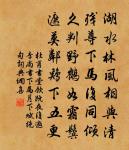 湖水林風相與清
殘尊下馬復同傾
久判野鶴如霜鬢
遮莫鄰雞下五更
杜甫書堂飲既夜復邀
李尚書下馬月下賦絕
句